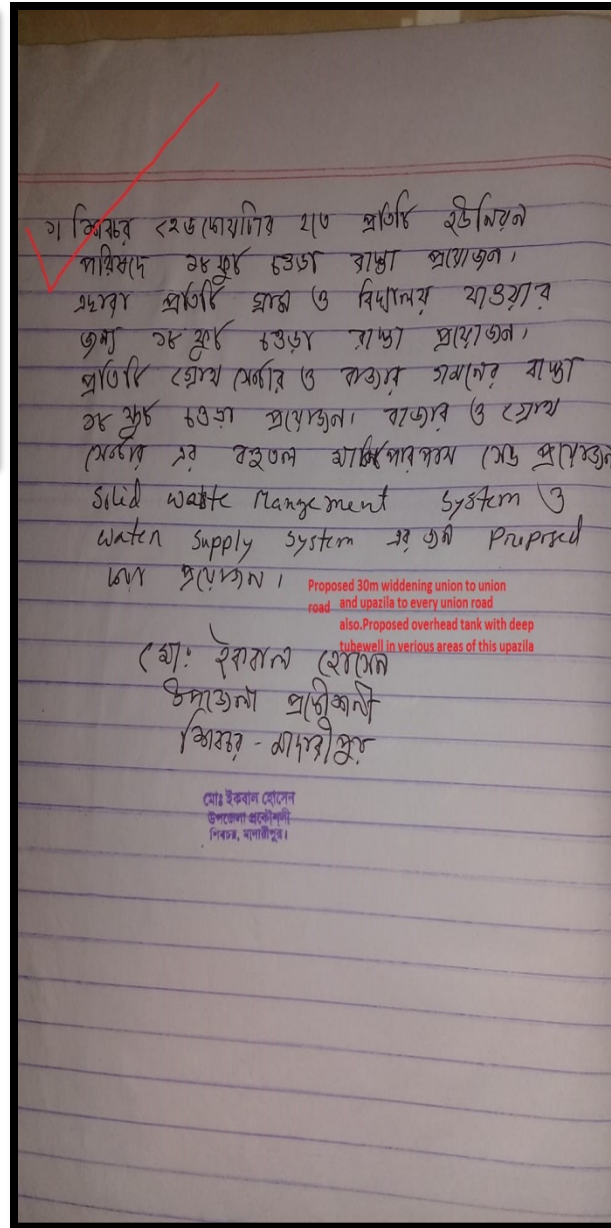 ১। শিবচর হেডকোয়ার্টার হতে প্রতিটি ইউনিয়ন
পরিষদে ১৮ ফুট চওড়া রাস্তা প্রয়োজন।
এছারা প্রতিটি গ্রাম ও বিদ্যালয় যাওয়ার
জন্য ১৮ ফুট চওড়া রাস্তা প্রয়োজন।
প্রতিটি গ্রোথ সেন্টার ও বাজার গমনের রাস্তা
১৮ ফুট চওড়া প্রয়োজন। বাজার ও গ্রোথ
সেন্টার এর বহুতল সেড প্রয়োজন
Solid Waste Mangement System ও
Water Supply System এর জন্য Proprsed
প্রয়োজন।
Proposed 30m widdening union to union
road and upazila to every union road
also.Proposed overhead tank with deep
tubewell in verious areas of this upazila
মোঃ ইকবাল হোসেন
উপজেলা প্রকৌশলী
শিবচর - মাদারীপুর
মোঃ ইকবাল হোসেন
উপজেলা প্রকৌশলী
শিবচর, মাদারীপুর।